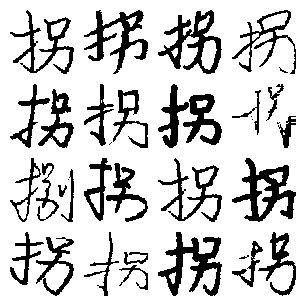 拐拐拐拐
拐拐拐拐
捌拐拐拐
拐拐拐拐